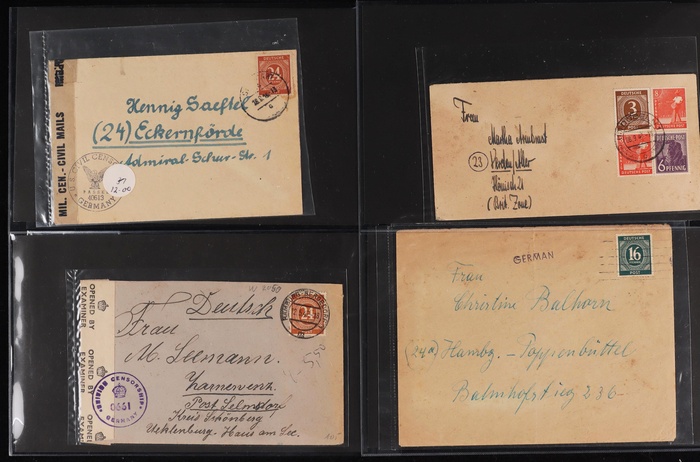 MIL. CEN. - CIVIL MAILS
DEUTSCHE
24
Hennig Saeftel
(24) Eckernförde
Admiral-Scheer-Str. 1
U.S. CIVIL CENSORSHIP
GERMANY
12.00
Frau
Martha
23
(Brit. Zone)
DEUTSCHE
3
8
DEUTSCHE POST
DEUTSCHE POST
6 PFENNIG
OPENED BY
EXAMINER
OPENED BY
EXAMINER
OPENED BY
BRITISH CENSORSHIP
GERMANY
24
Deutsch
Frau
M. Seemann.
Post Selmsdorf
Kreis Schönberg
Mecklenburg. Haus am See.
GERMAN
DEUTSCHE
16
POST
Frau
Christine Balhorn
(24a) Hambg. - Poppenbüttel
Bahnhofstieg 236